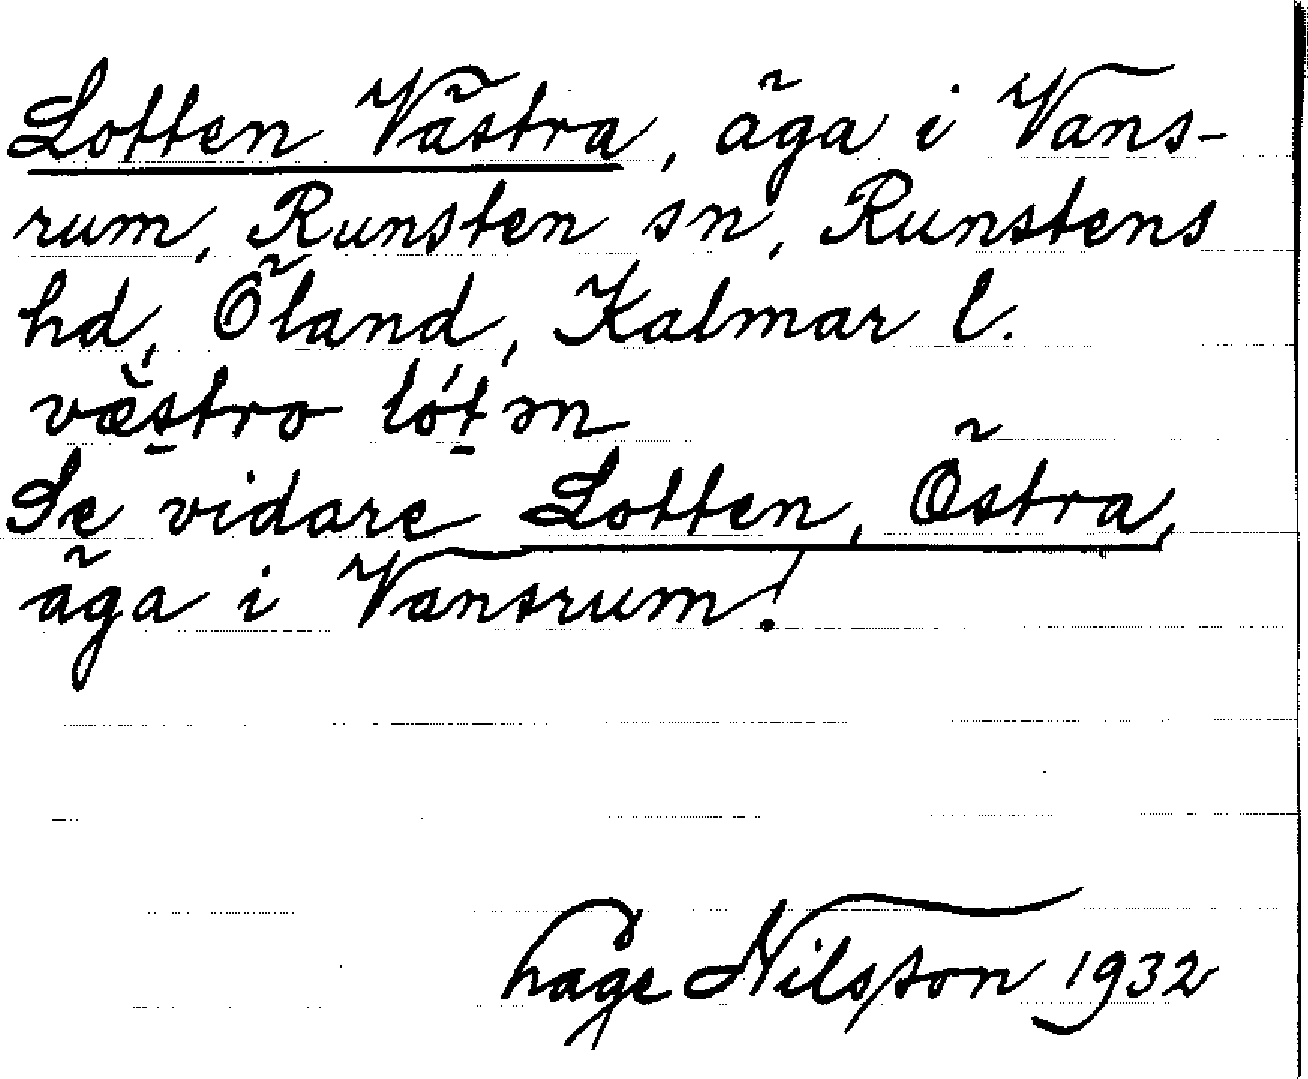 Lotten Västra, äga i Vans-
rum, Runsten sn, Runstens
hd, Öland, Kalmar l.
væ̆s̱tro lót̠ən
Se vidare Lotten, Östra,
äga i Vansrum!
Hage Nilsson 1932